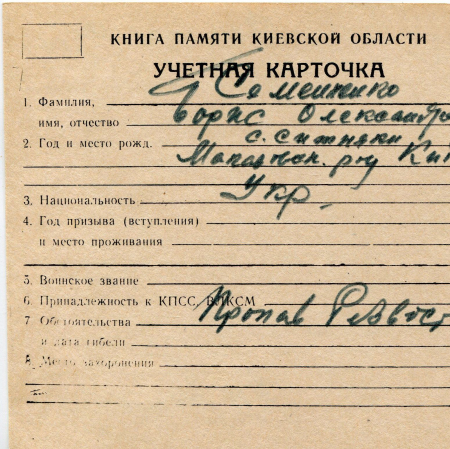 КНИГА ПАМЯТИ КИЕВСКОЙ ОБЛАСТИ
УЧЕТНАЯ КАРТОЧКА
1. Фамилия, Семененко
имя, отчество Борис Олександр
2. Год и место рожд. с. Ситняки
Макарівськ. р-у Ки
3. Национальность Укр.
4. Год призыва (вступления)
и место проживания
5. Воинское звание
6. Принадлежность к КПСС, ВЛКСМ
7 Обстоятельства Пропав
и дата гибели
8. Место захоронения